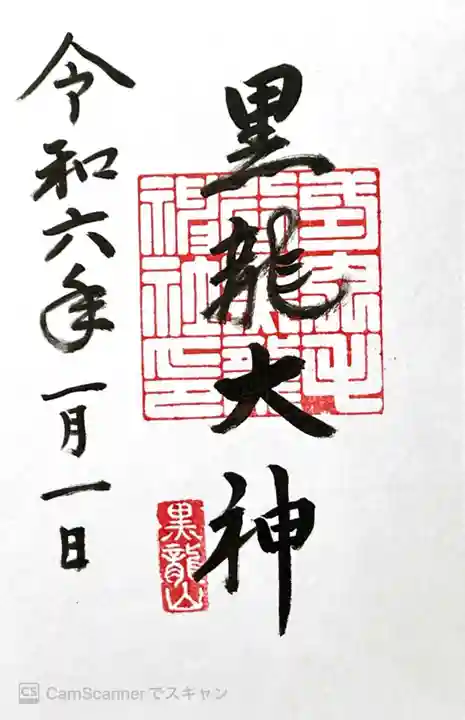 黒龍大神
令和六年一月一日
黒龍山
CS CamScannerでスキャン